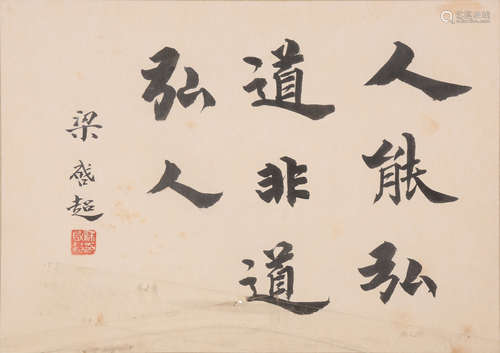 人能弘
道非道
弘人
梁啓超